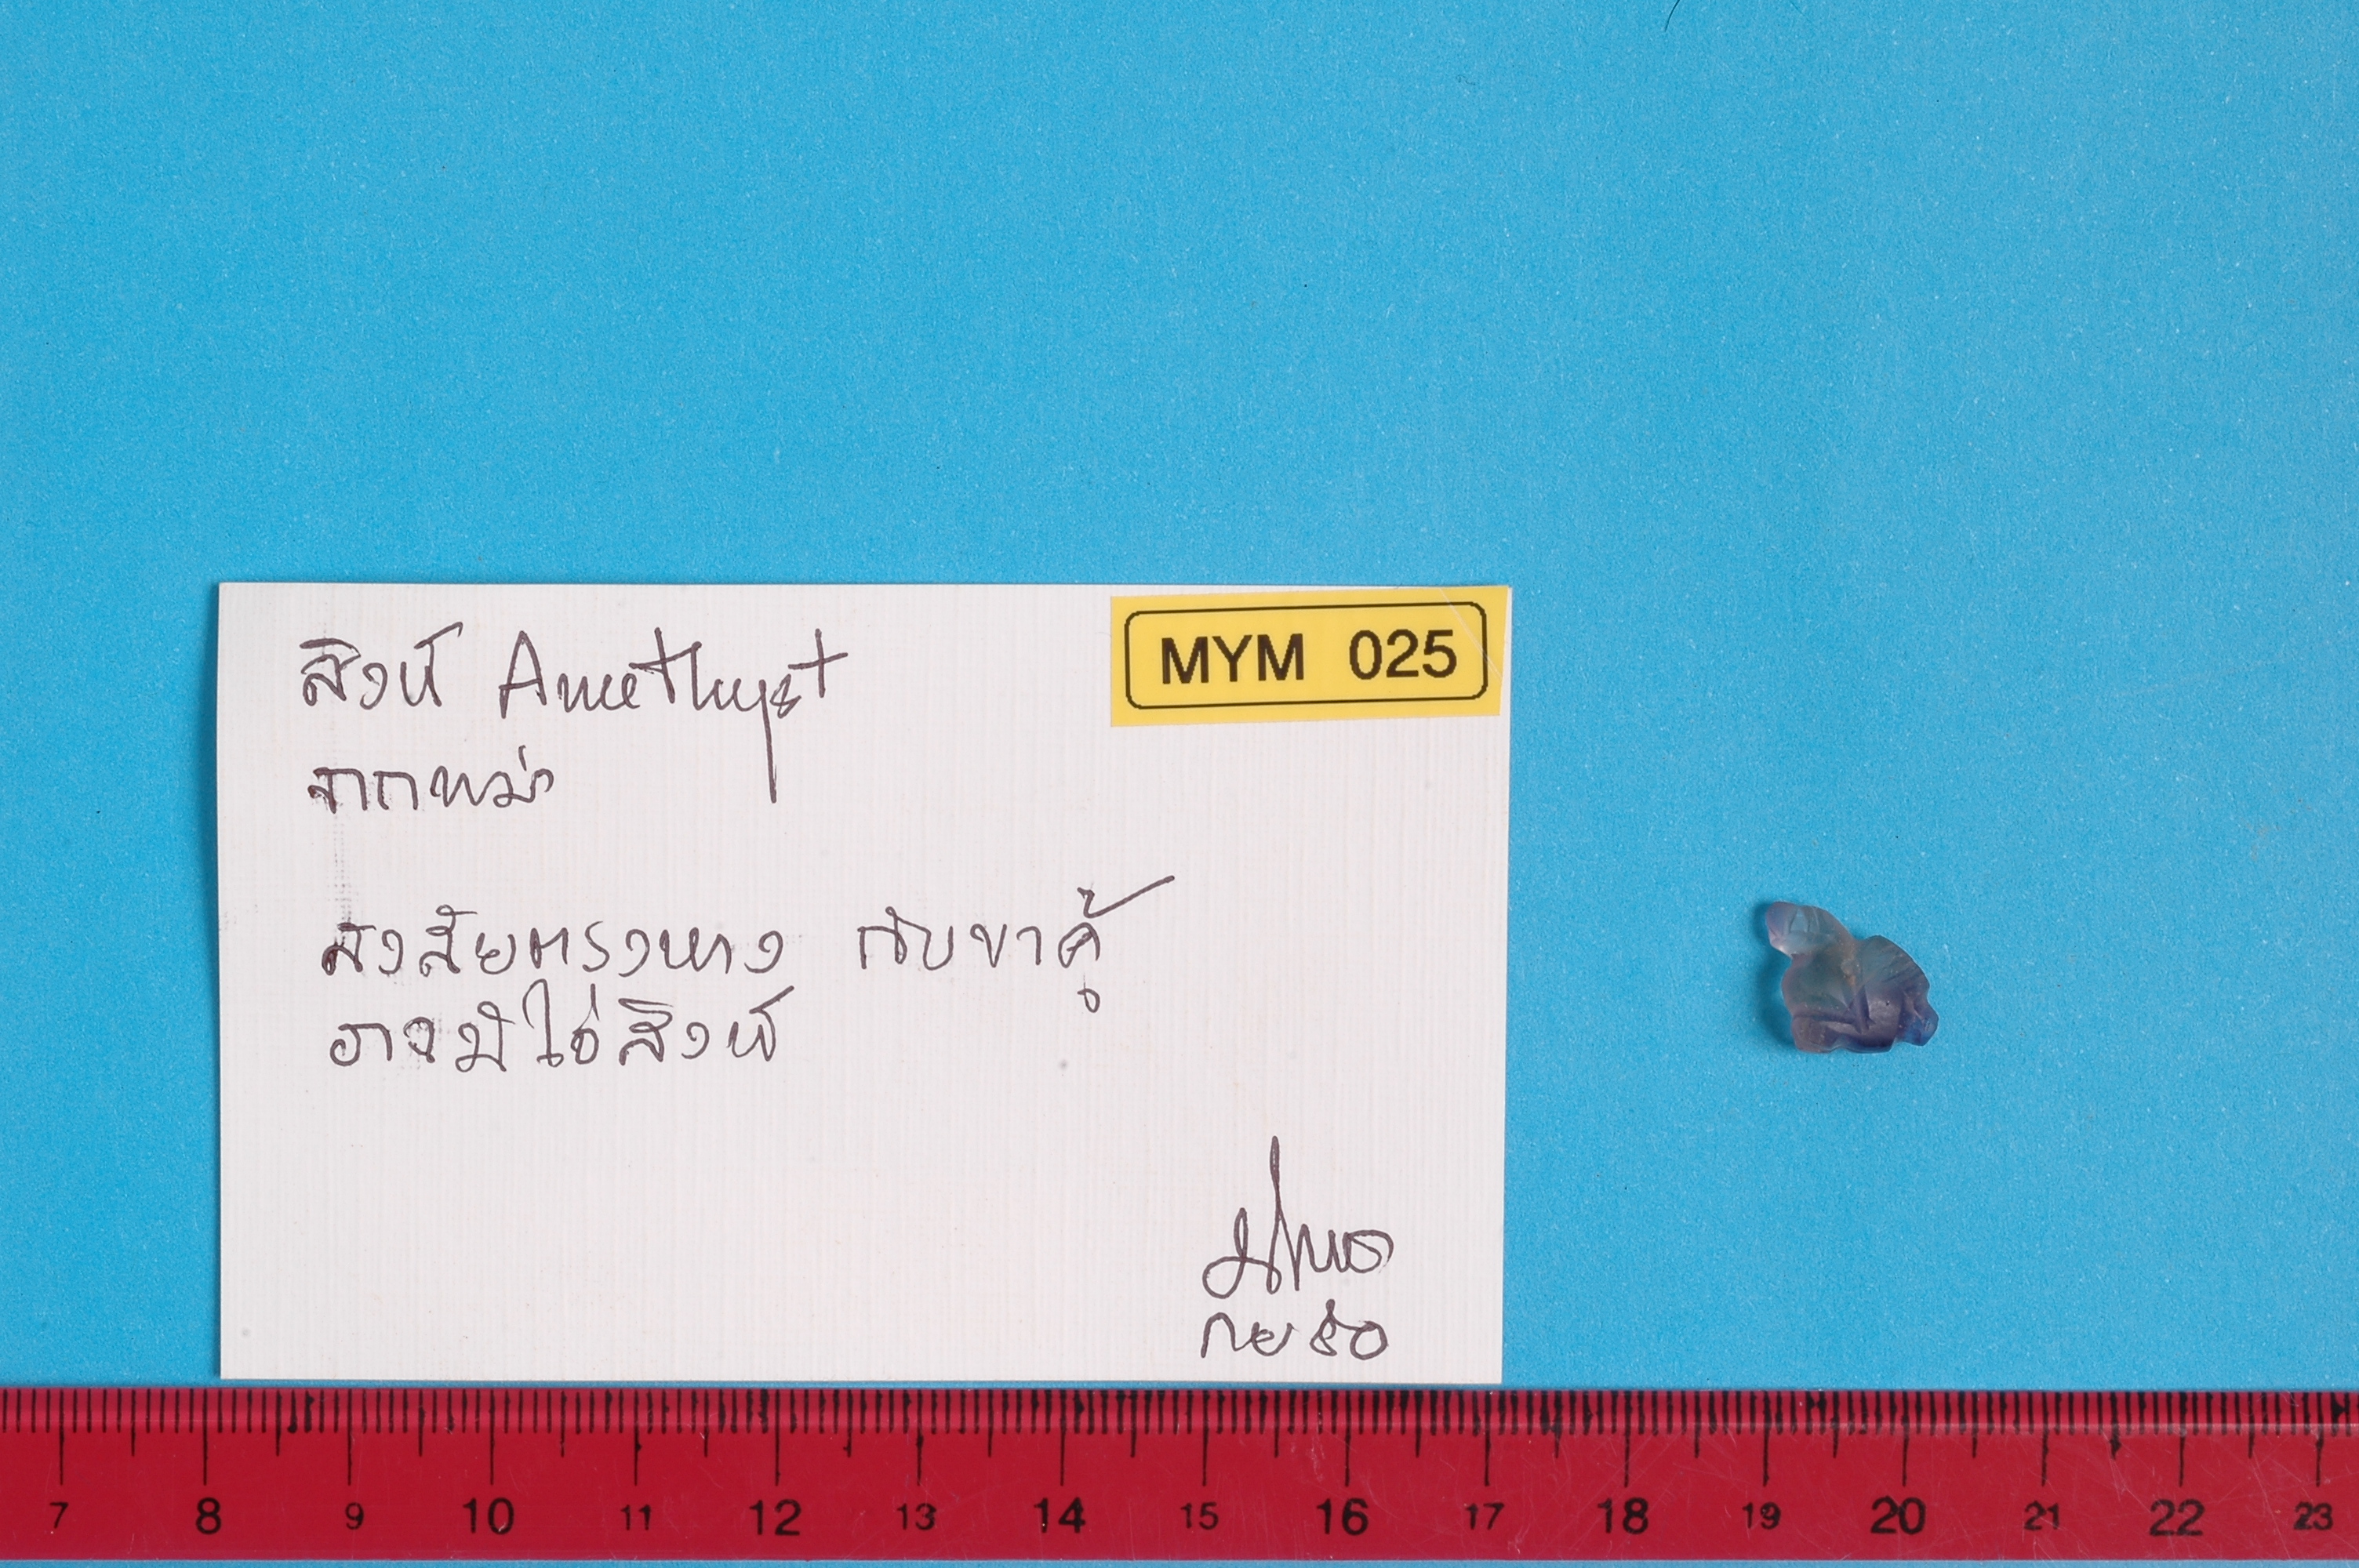 สิงห์ Amethyst
MYM 025
จากพม่า
สงสัยตรงหาง กับขาคู้
อาจมิใช่สิงห์
7 8 9 10 11 12 13 14 15 16 17 18 19 20 21 22 23